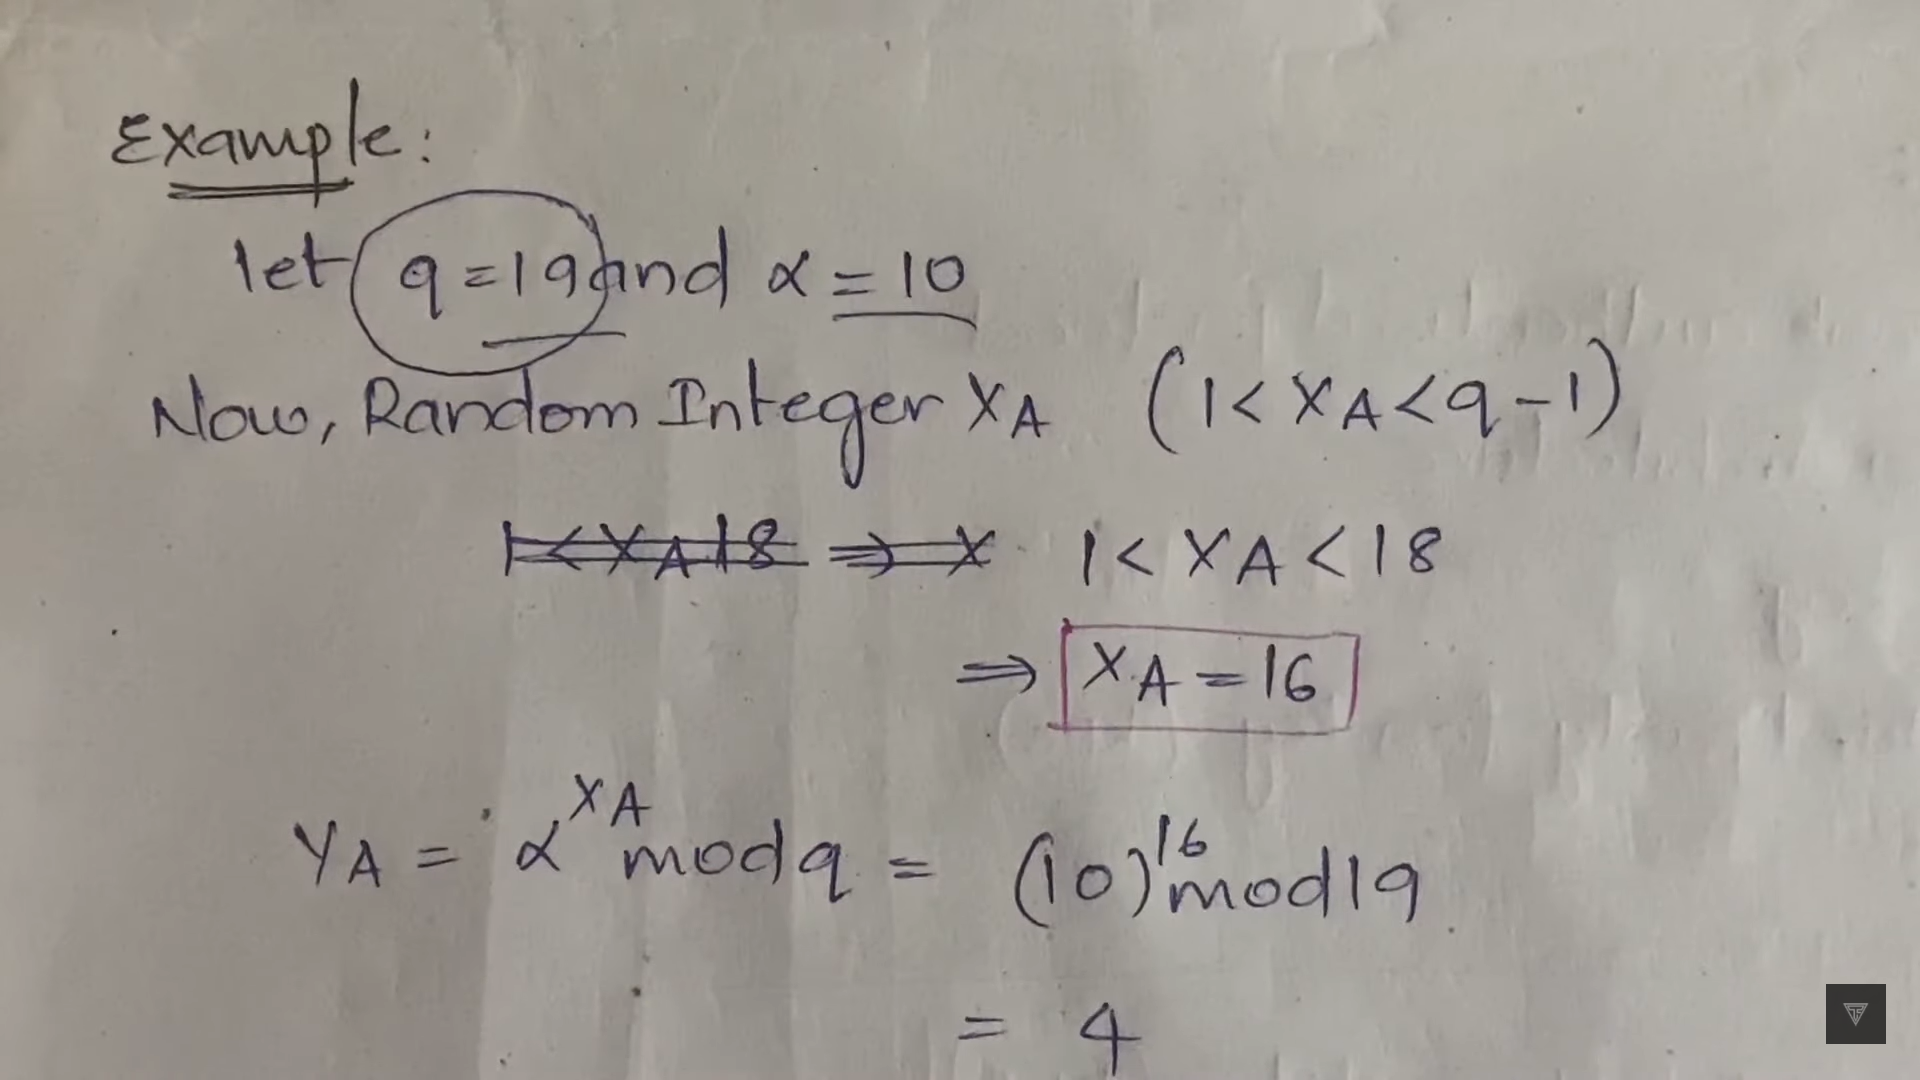 Example:
let q = 19 and α = 10
Now, Random Integer XA (1 < XA < q - 1)
1 < XA 18 ⇒ X 1 < XA < 18
⇒ XA = 16
YA = α^XA mod q = (10)^16 mod 19
= 4